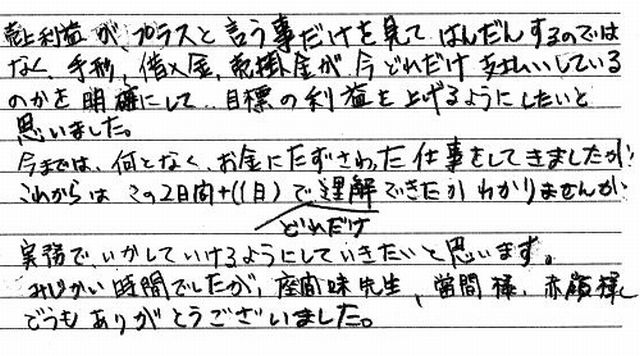 売上利益が、プラスと言う事だけを見て はんだんするのでは
なく、手形、借入金、売掛金が今どれだけ支払いしている
のかを明確にして、目標の利益を上げるようにしたいと
思いました。
今までは、何となく、お金にたずさわった仕事をしてきましたが、
これからは この2日間+(1日)で 理解できたか わかりませんが
どれだけ
実務で、いかしていけるようにしていきたいと思います。
みじかい時間でしたが、座間味先生、當間様、赤嶺様
どうもありがとうございました。